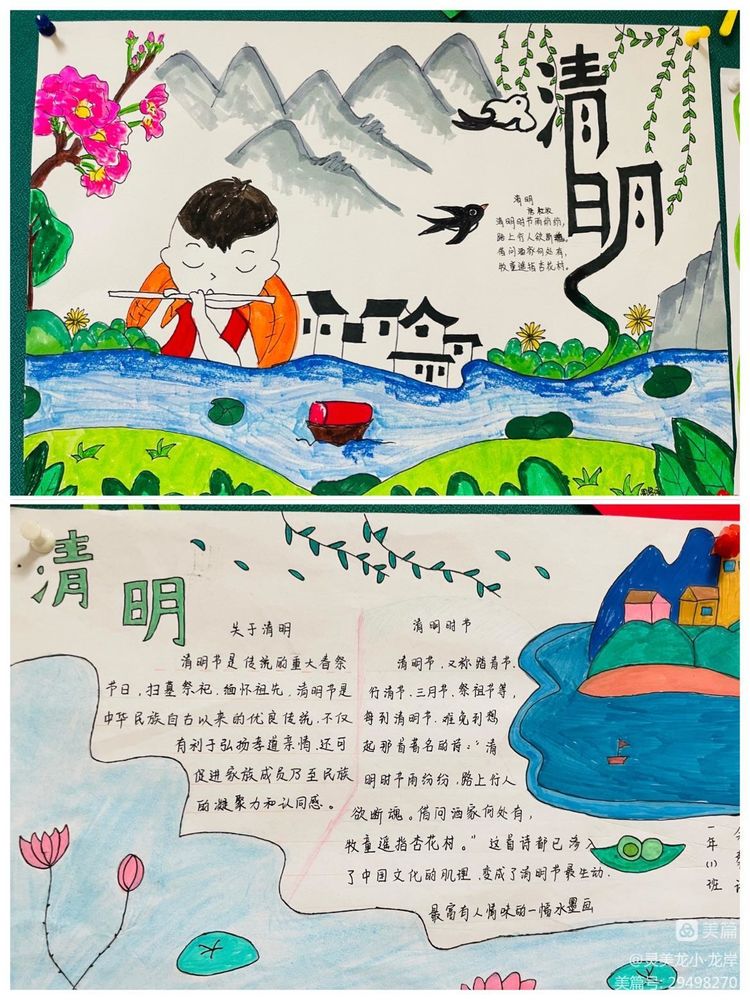 清明
清明
唐 杜牧
清明时节雨纷纷,
路上行人欲断魂。
借问酒家何处有,
牧童遥指杏花村。
清明
关于清明
清明节是传统的重大春祭
节日,扫墓祭祀、缅怀祖先,清明节是
中华民族自古以来的优良传统,不仅
有利于弘扬孝道亲情、还可
促进家族成员乃至民族
的凝聚力和认同感。
清明时节
清明节,又称踏青节、
行清节、三月节、祭祖节等,
每到清明节,难免判想
起那首著名的诗:“清
明时节雨纷纷,路上行人
欲断魂。借问酒家何处有,
牧童遥指杏花村。”这首诗都已渗入
了中国文化的肌理,变成了清明节最生动、
最富有人情味的一幅水墨画
一年(1)班
美篇
@灵美龙小·龙岸
美篇号: 29498270